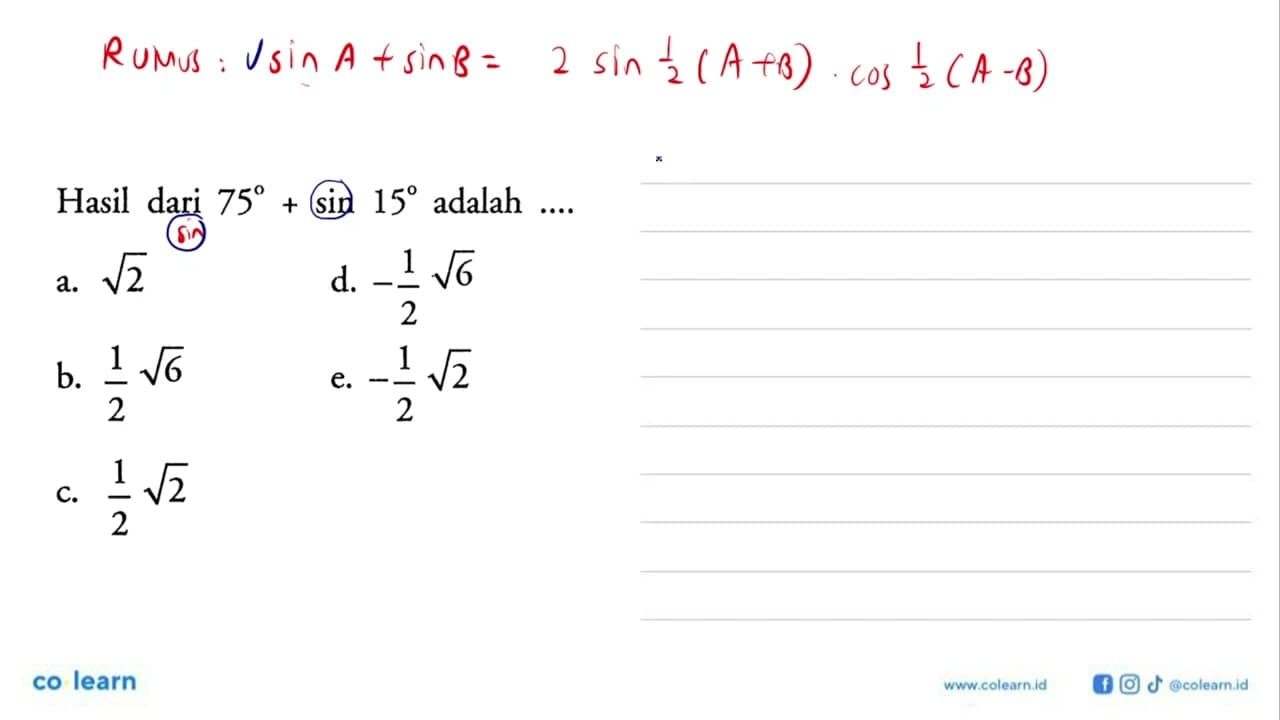 RUMUS : √sin A + sin B = 2 sin 1/2 (A + B) . cos 1/2 (A - B)
Hasil dari 75° + sin 15° adalah ....
sin
a. √2
d. -1/2 √6
b. 1/2 √6
e. -1/2 √2
c. 1/2 √2
co learn
www.colearn.id
@colearn.id